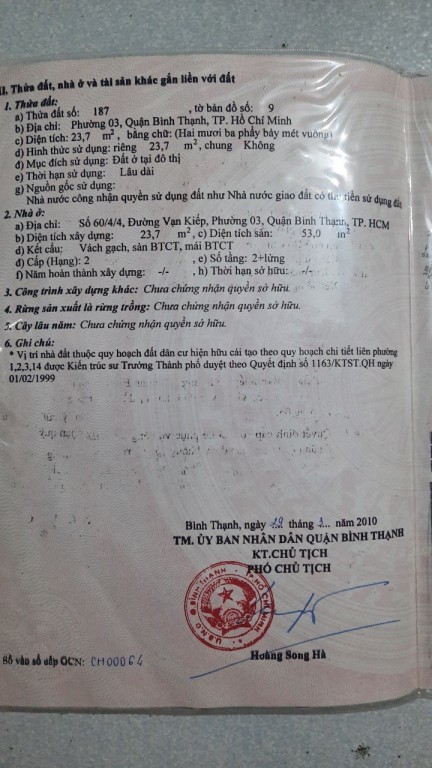 II. Thửa đất, nhà ở và tài sản khác gắn liền với đất
1. Thửa đất:
a) Thửa đất số: 187 , tờ bản đồ số: 9
b) Địa chỉ: Phường 03, Quận Bình Thạnh, TP. Hồ Chí Minh
c) Diện tích: 23,7 m², bằng chữ: (Hai mươi ba phẩy bảy mét vuông)
d) Hình thức sử dụng: riêng 23,7 m², chung Không
đ) Mục đích sử dụng: Đất ở tại đô thị
e) Thời hạn sử dụng: Lâu dài
g) Nguồn gốc sử dụng:
Nhà nước công nhận quyền sử dụng đất như Nhà nước giao đất có thu tiền sử dụng đất
2. Nhà ở:
a) Địa chỉ: Số 60/4/4, Đường Vạn Kiếp, Phường 03, Quận Bình Thạnh, TP. HCM
b) Diện tích xây dựng: 23,7 m², c) Diện tích sàn: 53,0 m²
d) Kết cấu: Vách gạch, sàn BTCT, mái BTCT
đ) Cấp (Hạng): 2 , e) Số tầng: 2+lửng
f) Năm hoàn thành xây dựng: -/- , h) Thời hạn sở hữu: -/-
3. Công trình xây dựng khác: Chưa chứng nhận quyền sở hữu.
4. Rừng sản xuất là rừng trồng: Chưa chứng nhận quyền sở hữu.
5. Cây lâu năm: Chưa chứng nhận quyền sở hữu.
6. Ghi chú:
* Vị trí nhà đất thuộc quy hoạch đất dân cư hiện hữu cải tạo theo quy hoạch chi tiết liên phường
1,2,3,14 được Kiến trúc sư Trưởng Thành phố duyệt theo Quyết định số 1163/KTST.QH ngày
01/02/1999
Bình Thạnh, ngày tháng năm 2010
TM. ỦY BAN NHÂN DÂN QUẬN BÌNH THẠNH
KT.CHỦ TỊCH
PHÓ CHỦ TỊCH
U.B.N.D Q.BÌNH THẠNH - TP.HỒ CHÍ MINH
Hoàng Song Hà
Số vào sổ cấp GCN: CH00064